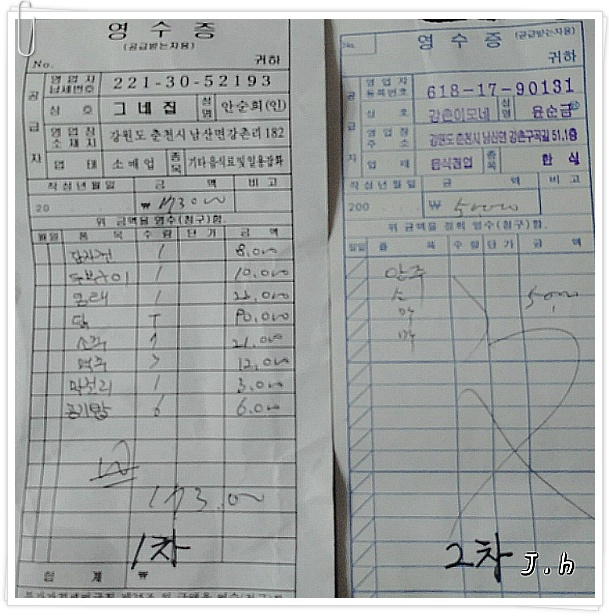 영 수 증
(공급받는자용)
No. 귀하
공 급 자
영 업 자 납세번호 221-30-52193
상 호 그네집 성명 안순희(인)
영업장 소재지 강원도 춘천시 남산면강촌리 182
업 태 소매업 종목 기타음식료및일용잡화
작성년월일 금 액 비 고
20 ₩ 173000
위 금액을 영수(청구)함.
월일 품 목 수 량 단 가 금 액
감자전 1 8,000
두부구이 1 10,000
1
닭 90,000
소주 7 21,000
맥주 12,000
막걸리 1 3,000
공기밥 6 6,000
173,000
1차
합 계 ₩
영 수 증 (공급받는자용)
No. 귀하
공 급 자
영 업 자 등록번호 618-17-90131
상 호 강촌이모네 성명 윤순금
영업장 주 소 강원도 춘천시 남산면 강촌구곡길 51,18
업 태 음식점업 종목 한 식
작 성 년 월 일 금 액 비 고
200 ₩ 50000
위 금액을 정히 영수(청구)함.
월일 품 목 수 량 단 가 금 액
안주
소 50,000
맥
2차 J.h